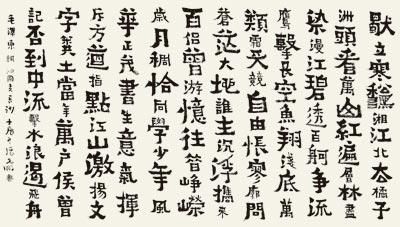 獨立寒秋湘江北去橘子
洲頭看萬山紅遍層林盡
染漫江碧透百舸爭流
鷹擊長空魚翔淺底萬
類霜天競自由悵寥廓問
蒼茫大地誰主沉浮攜來
百侶曾游憶往昔崢嶸
歲月稠恰同學少年風
華正茂書生意氣揮
斥方遒指點江山激揚文
字糞土當年萬戶侯曾
記否到中流擊水浪遏飛舟
毛澤東詞沁園春長沙